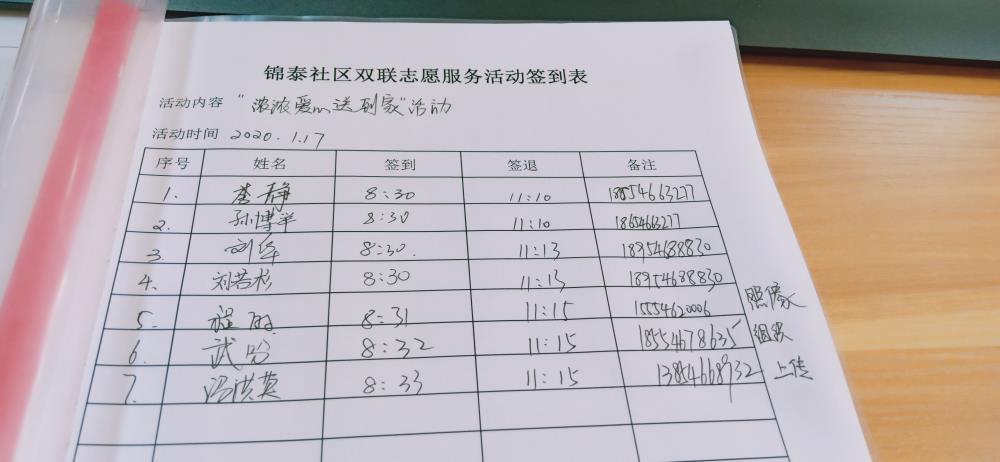 锦泰社区双联志愿服务活动签到表
活动内容 "浓浓爱心送到家"活动
活动时间 2020.1.17
序号 姓名 签到 签退 备注
1. 李静 8:30 11:10 18554663277
2. 孙博洋 8:30 11:10 18654663277
3. 刘华 8:30. 11:13 18954688830
4. 刘若杉 8:30 11:13 18954688830
5. 程 8:31 11:15 15554620006 照像
6. 武 8:32 11:15 18554678635 组织
7. 冯洪英 8:33 11:15 13854668932 上传